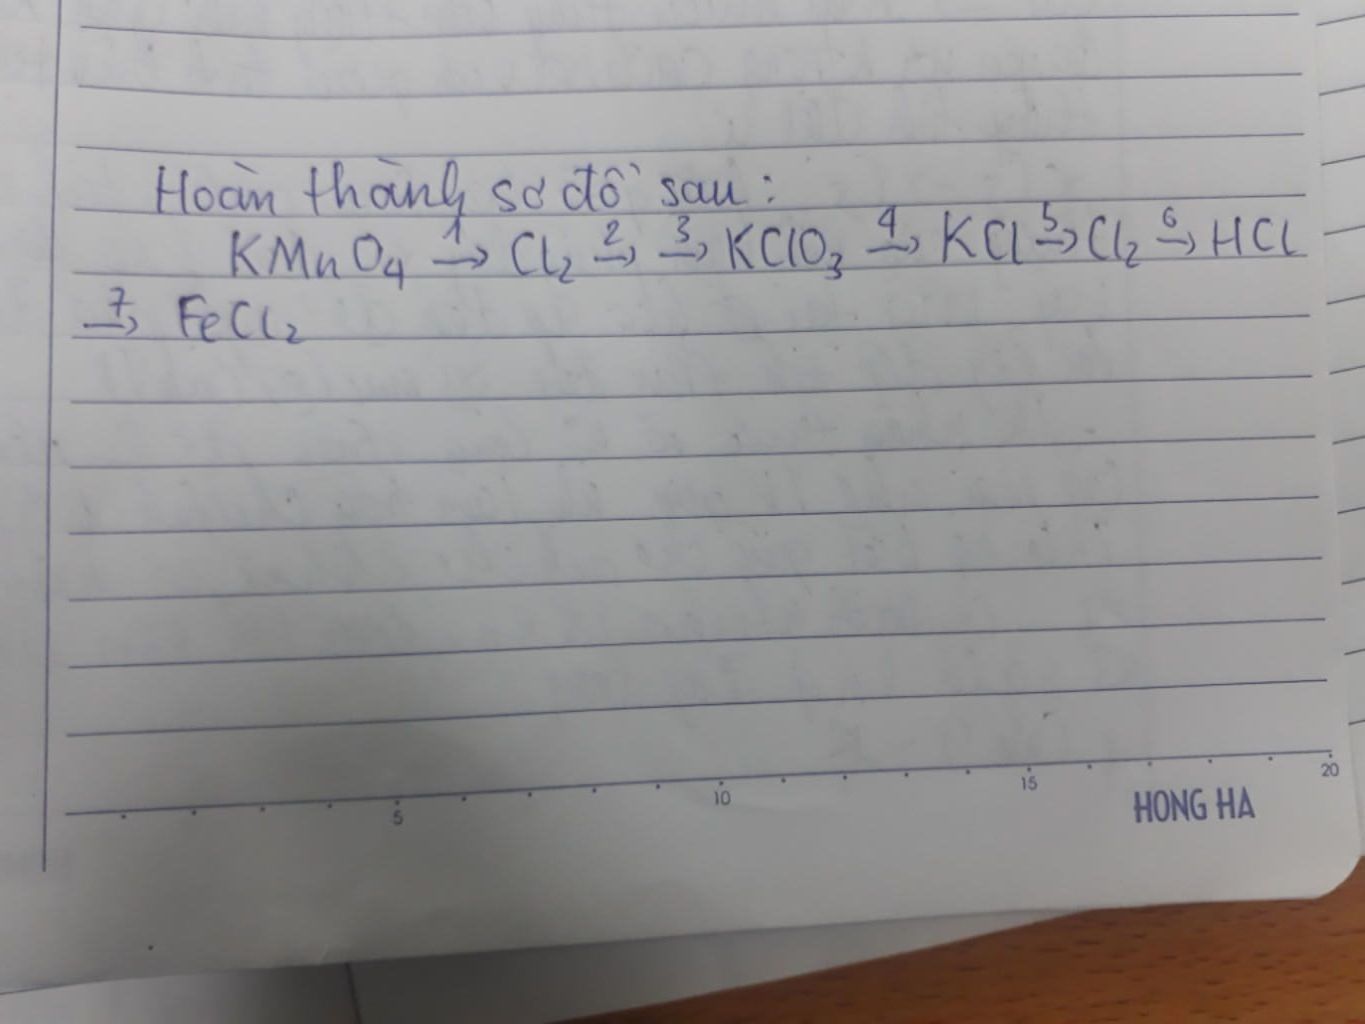 Hoàn thành sơ đồ sau:
KMnO₄ →¹ Cl₂ →² →³ KClO₃ →⁴ KCl →⁵ Cl₂ →⁶ HCl
→⁷ FeCl₂
5 10 15 20
HONG HA